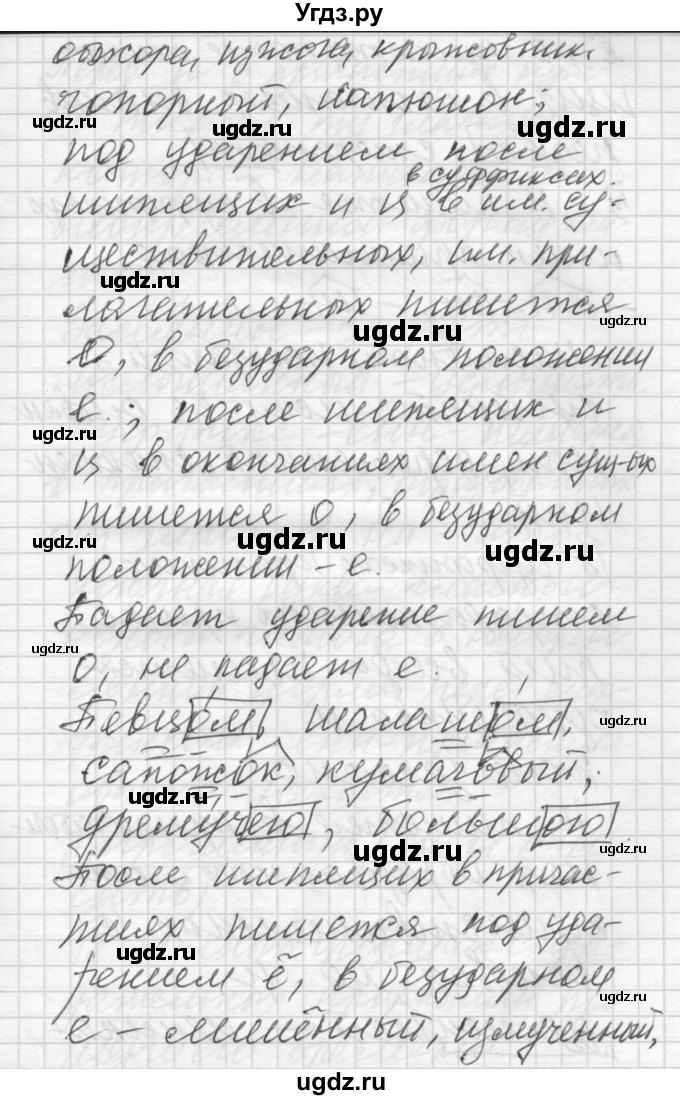 Угдз.ру
обжора, изжога, крыжовник.
чопорный, капюшон;
под ударением после
в суффиксах.
шипящих и ц в им. су-
ществительных, им. при-
лагательных пишется
О, в безударном положении
е.; после шипящих и
ц в окончаниях имен сущ-ых
пишется О, в безударном
положении - е.
Падает ударение пишем
О, не падает е.
Певцом, шалашом,
сапожок, кумачовый,
дремучего, большого
После шипящих в причас-
тиях пишется под уда-
рением ё, в безударном
е - лишённый, измученный,
ugdz.ru